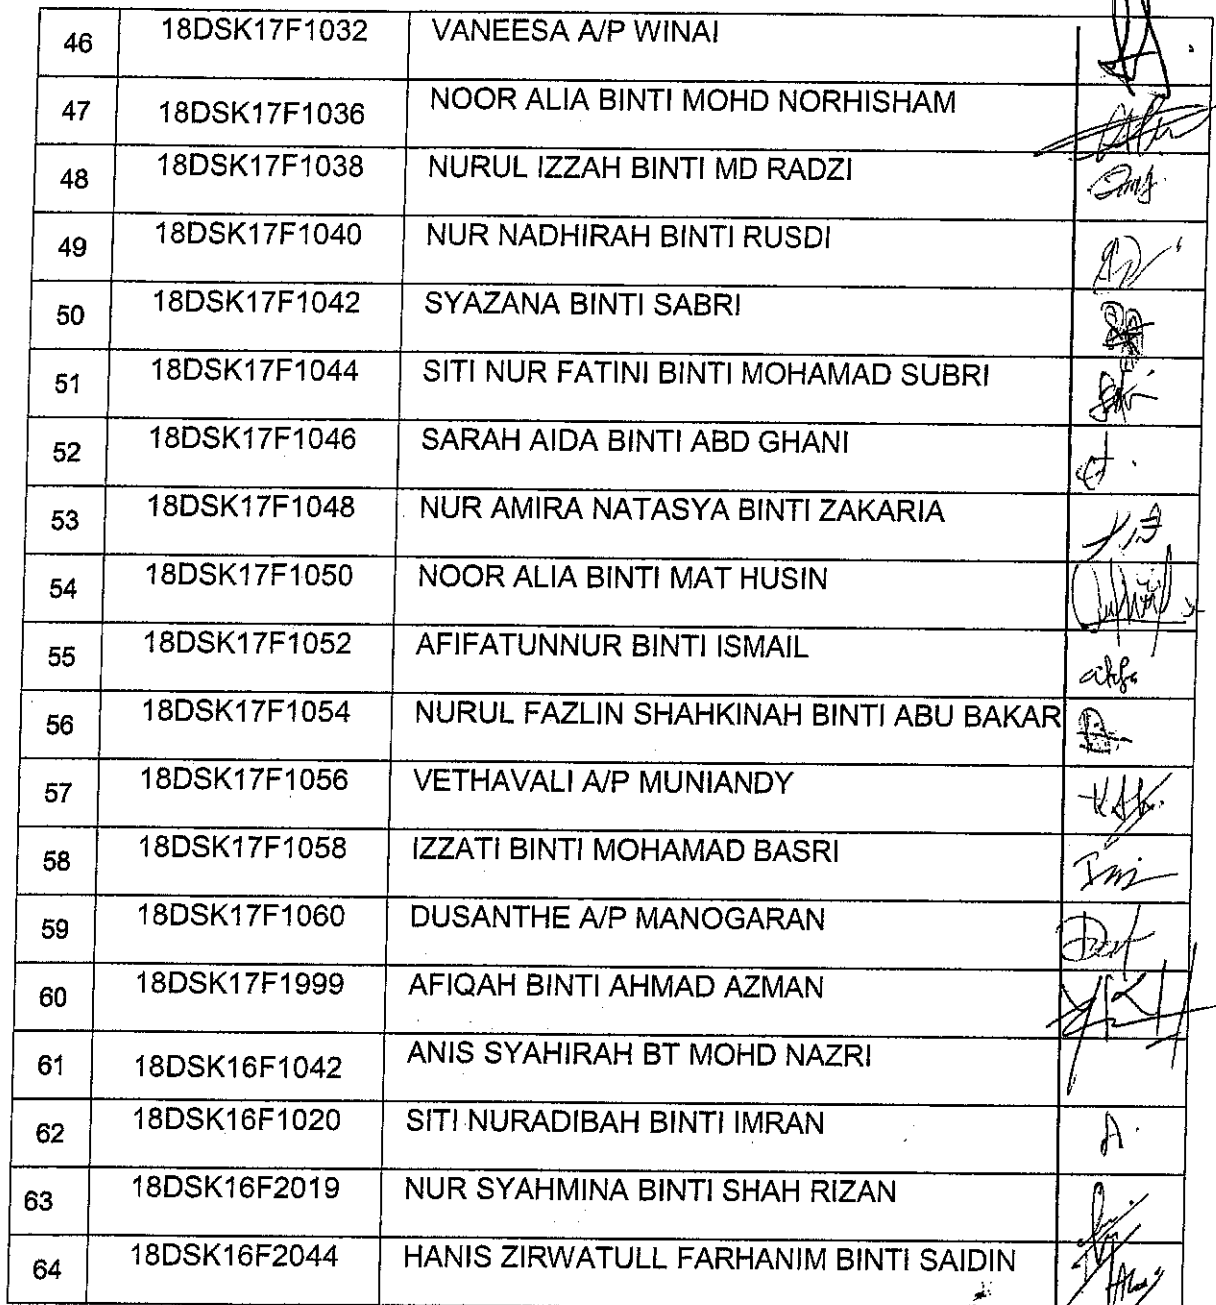 46 18DSK17F1032 VANEESA A/P WINAI
47 18DSK17F1036 NOOR ALIA BINTI MOHD NORHISHAM
48 18DSK17F1038 NURUL IZZAH BINTI MD RADZI
49 18DSK17F1040 NUR NADHIRAH BINTI RUSDI
50 18DSK17F1042 SYAZANA BINTI SABRI
51 18DSK17F1044 SITI NUR FATINI BINTI MOHAMAD SUBRI
52 18DSK17F1046 SARAH AIDA BINTI ABD GHANI
53 18DSK17F1048 NUR AMIRA NATASYA BINTI ZAKARIA
54 18DSK17F1050 NOOR ALIA BINTI MAT HUSIN
55 18DSK17F1052 AFIFATUNNUR BINTI ISMAIL
56 18DSK17F1054 NURUL FAZLIN SHAHKINAH BINTI ABU BAKAR
57 18DSK17F1056 VETHAVALI A/P MUNIANDY
58 18DSK17F1058 IZZATI BINTI MOHAMAD BASRI
59 18DSK17F1060 DUSANTHE A/P MANOGARAN
60 18DSK17F1999 AFIQAH BINTI AHMAD AZMAN
61 18DSK16F1042 ANIS SYAHIRAH BT MOHD NAZRI
62 18DSK16F1020 SITI NURADIBAH BINTI IMRAN
63 18DSK16F2019 NUR SYAHMINA BINTI SHAH RIZAN
64 18DSK16F2044 HANIS ZIRWATULL FARHANIM BINTI SAIDIN